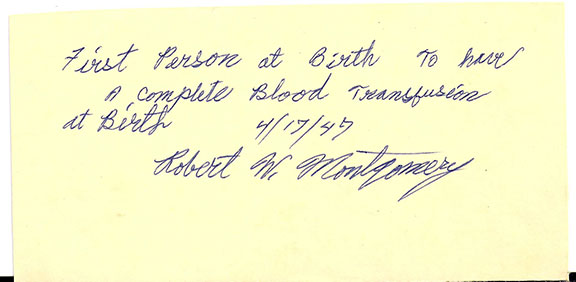 First Person at Birth To have
A complete Blood Transfusion
at Birth 4/17/47
Robert W. Montgomery